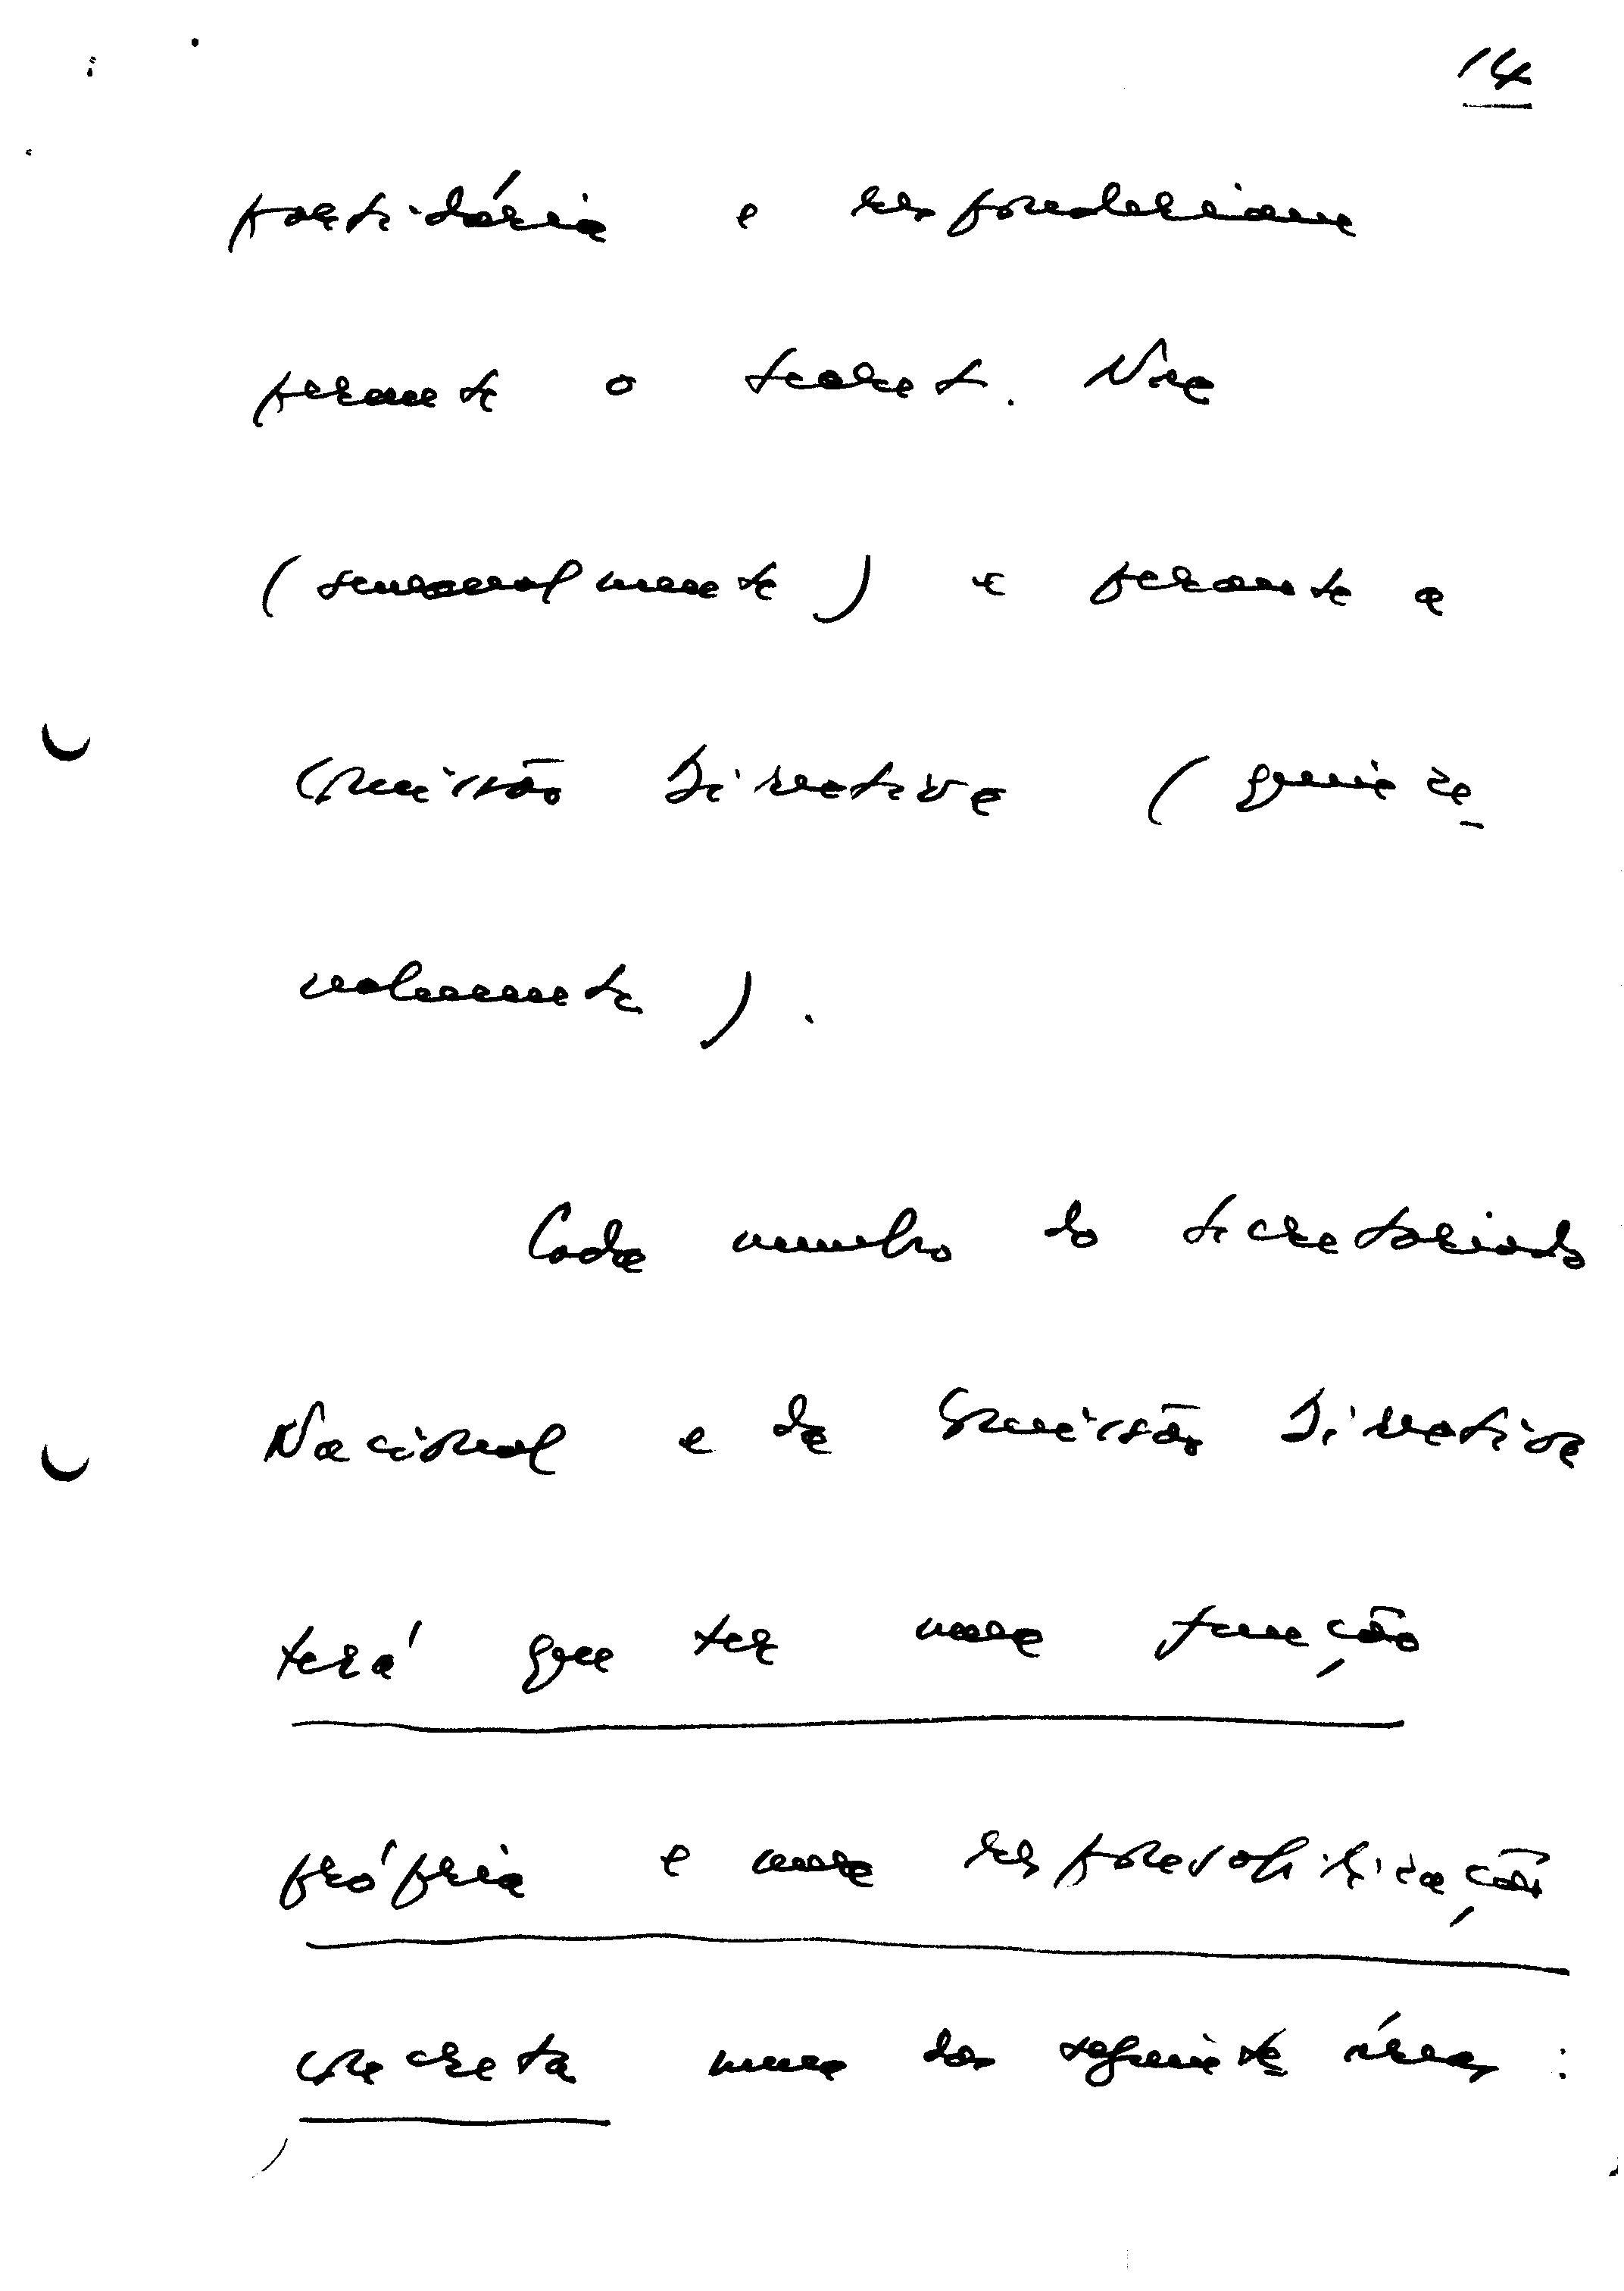 14
partidária e responderiam
perante o Secret. Nac
(semanalmente) e perante a
Comissão Directiva (quinze-
nalmente).
Cada membro do Secretariado
Nacional e da Comissão Directiva
terá que ter uma função
própria e uma responsabilização
concreta numa das seguintes áreas: